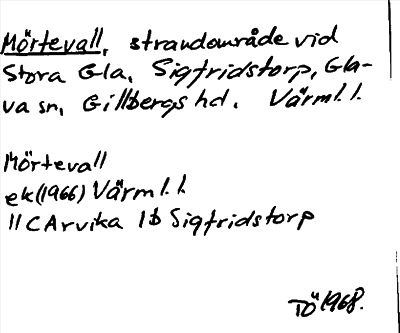 Mörtevall, strandområde vid
Stora Gla, Sigfridstorp, Gla-
va sn, Gillbergs hd. Värml. l.
Mörtevall
ek (1966) Värml. l.
11 C Arvika 1b Sigfridstorp
TÖ 1968.